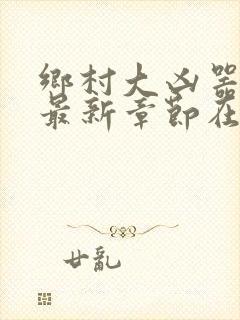 鄉村大凶器
最新章節在
廿亂